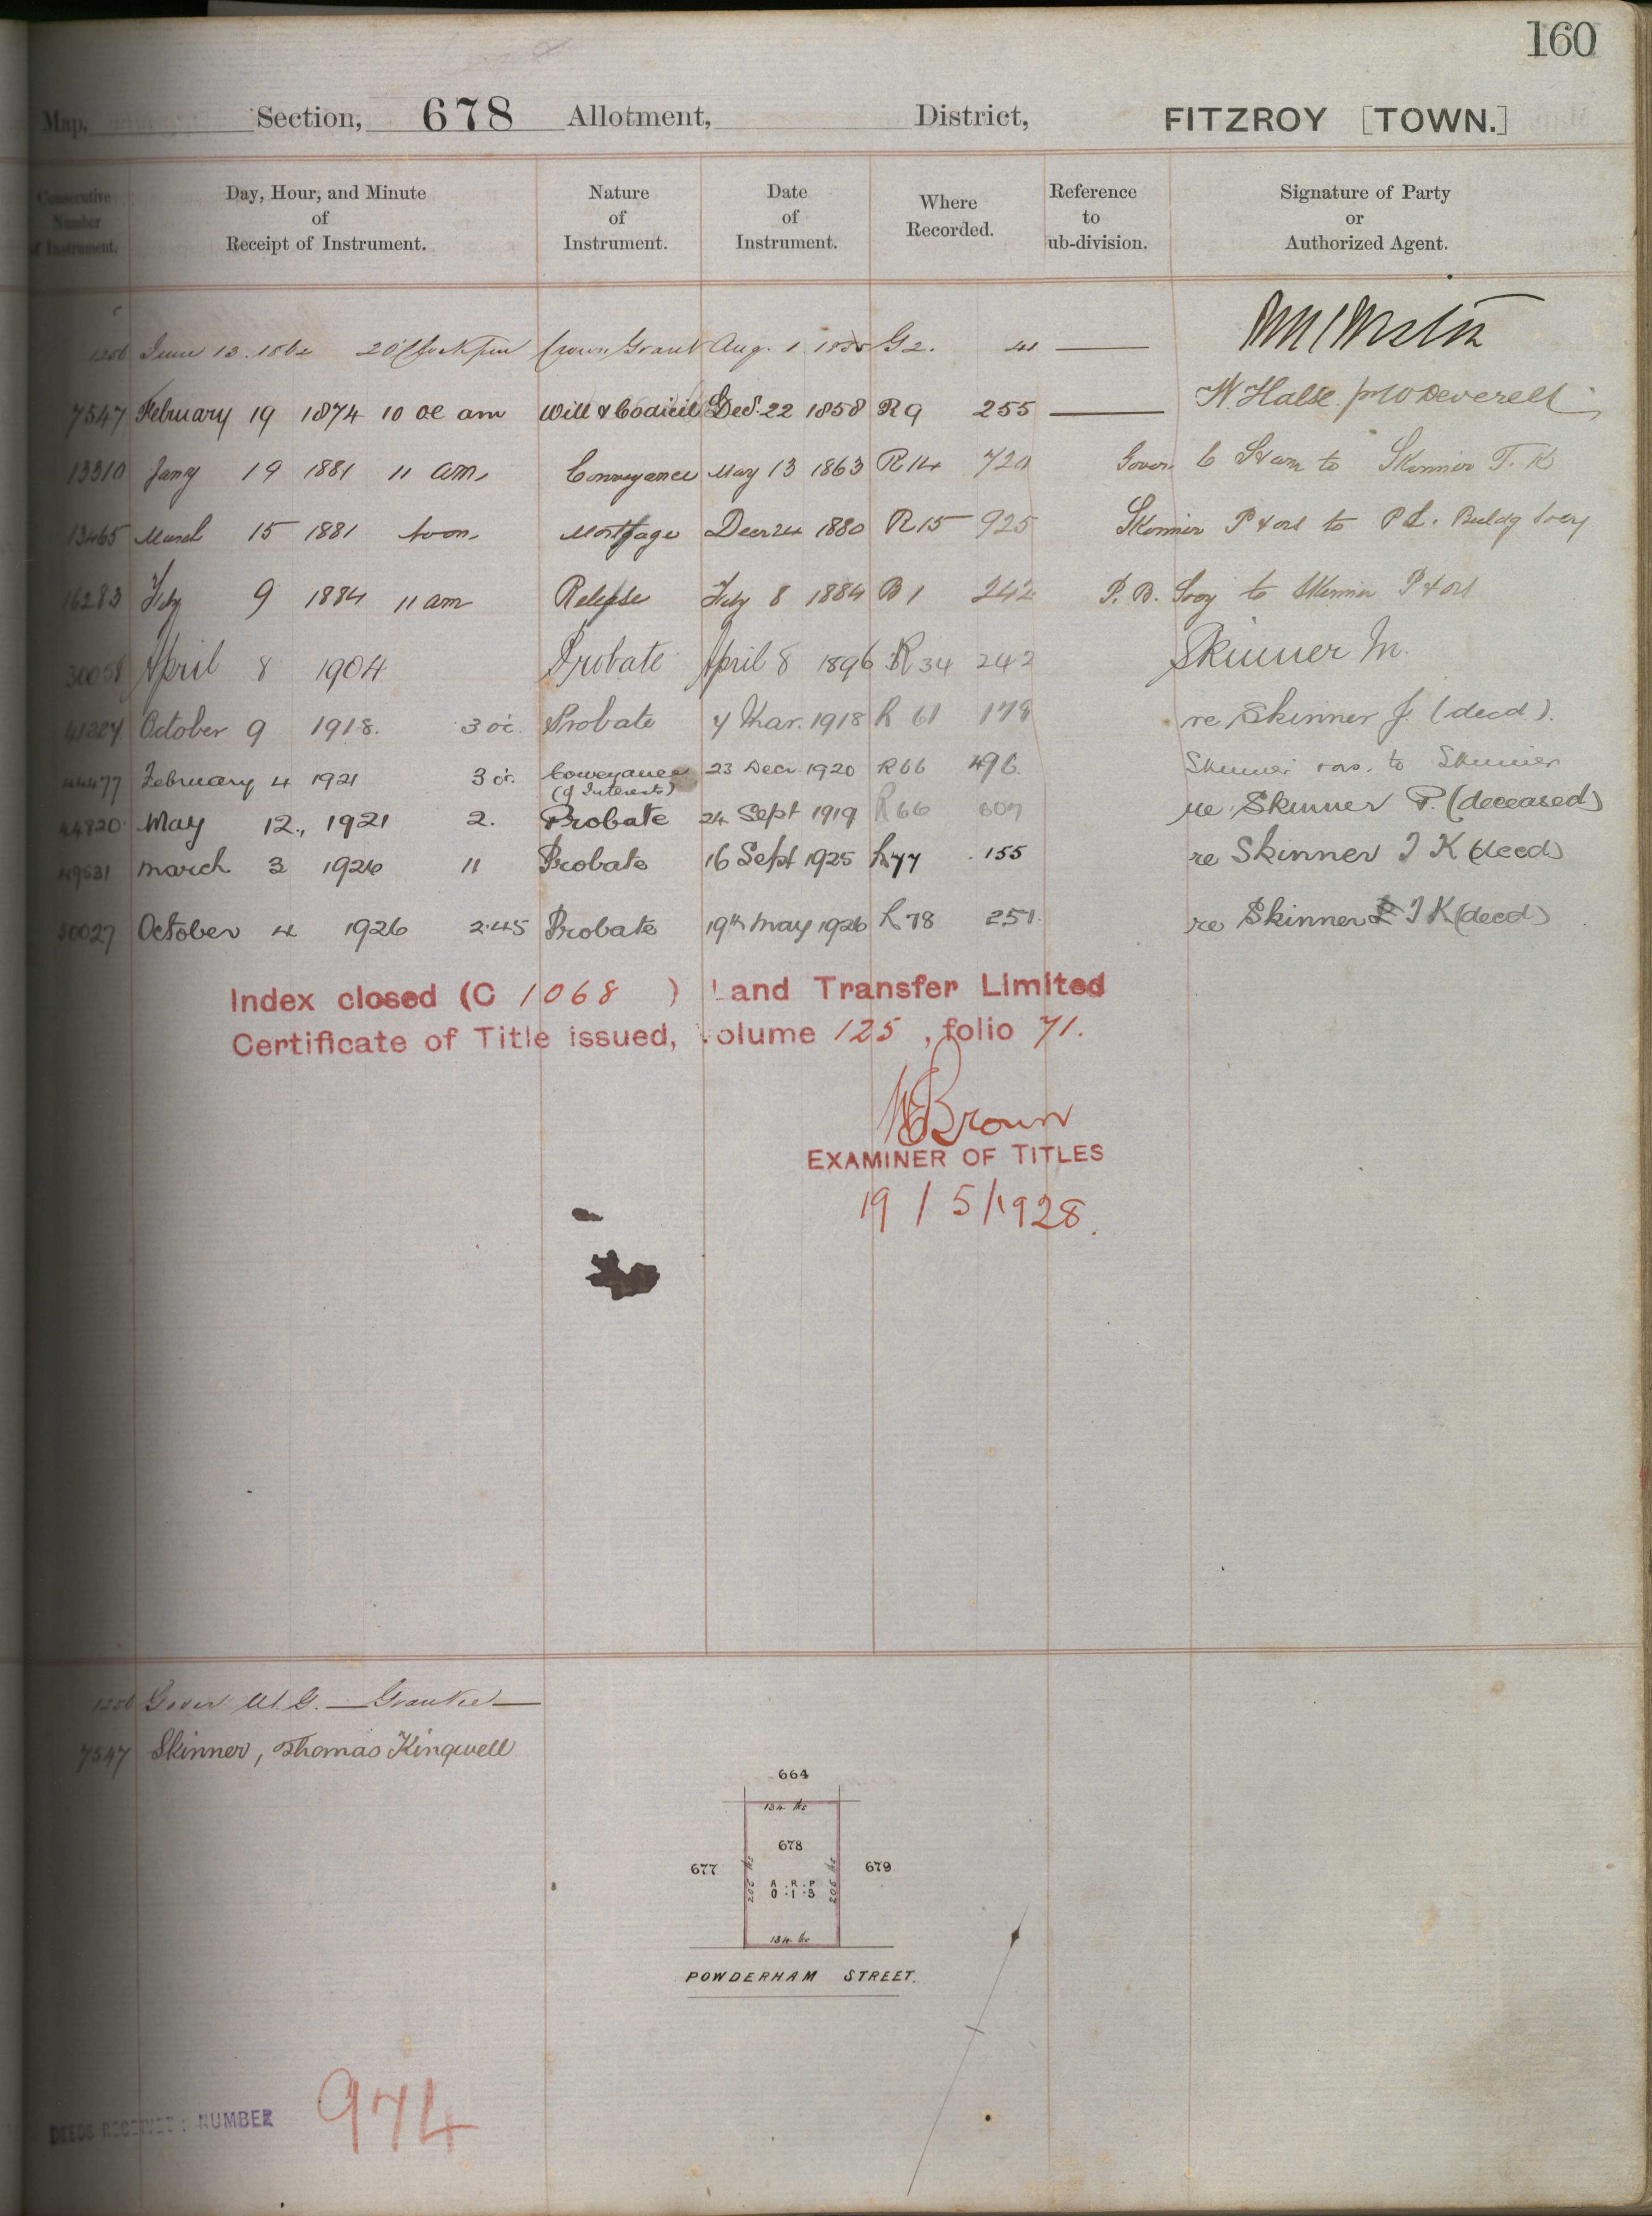 160
Map, Section, 678 Allotment, District, FITZROY [TOWN.]
Consecutive Number of Instrument. Day, Hour, and Minute of Receipt of Instrument. Nature of Instrument. Date of Instrument. Where Recorded. Reference to ub-division. Signature of Party or Authorized Agent.
1250 June 13. 1862 2 O'Clock pm Crown Grant Aug. 1. G2. 41
7547 February 19 1874 10 oc am Will & Codicil Decr. 22 1858 R9 255 W. Halse. pr W Deverell
13310 Jany 19 1881 11 am Conveyance May 13 1863 R14 720 Gover to Skinner T. K
13465 March 15 1881 Noon Mortgage Decr 24 1880 R15 925 Skinner P & ors to P B. Buldg Socy
16283 Feby 9 1884 11 am Release Feby 8 1884 B1 242 P. B. Socy to Skinner P & ors
30058 April 8 1904 Probate April 8 1896 R34 242 Skinner M.
41284 October 9 1918. 3 oc. Probate 4 Mar. 1918 R 61 178 re Skinner J. (decd).
44477 February 4 1921 3 oc. Conveyance (of Interests) 23 Decr 1920 R66 496. Skinner to Skinner
44820 May 12., 1921 2. Probate 24 Sept 1919 R66 807 re Skinner P. (deceased)
49531 March 3 1926 11 Probate 16 Sept 1925 R77 155 re Skinner T K (decd)
50027 October 4 1926 2.45 Probate 19th May 1926 R78 251. re Skinner T K (decd)
Index closed (C 1068 ) Land Transfer Limited
Certificate of Title issued, Volume 125, folio 71.
Brown
EXAMINER OF TITLES
19/5/1928.
1250 Gover W. G. — Grantee —
7547 Skinner, Thomas Kingwell
664
134 lks
678
677
679
205 lks
205 lks
A . R . P
0 . 1 . 3
134 lks
POWDERHAM STREET.
DEEDS RECEIVED NUMBER 974